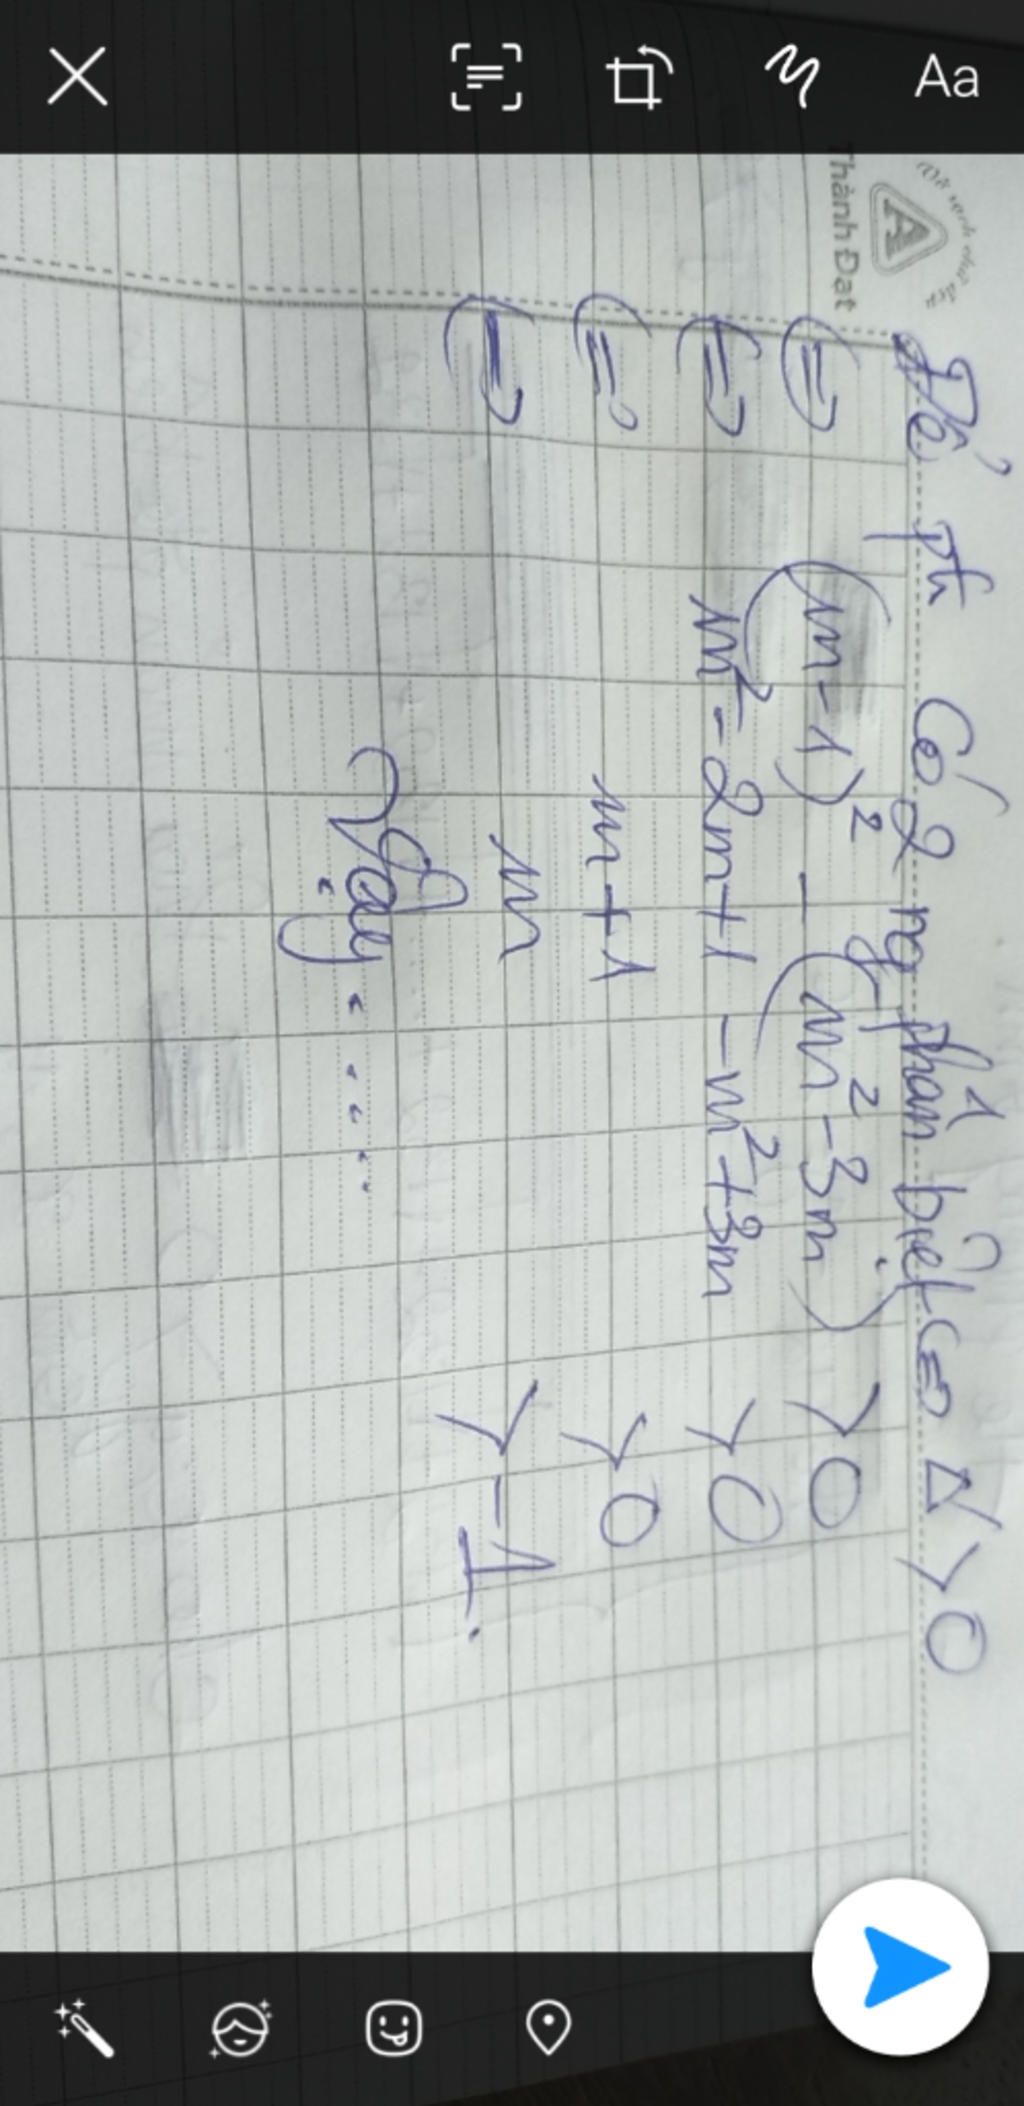 Aa
Vở sạch chữ đẹp
A
Thành Đạt
Để pt có 2 ng phân biệt <=> Δ' > 0
<=> (m-1)² - (m²-3m) > 0
<=> m²-2m+1 -m²+3m > 0
<=> m+1 > 0
<=> m > -1.
Vậy .....